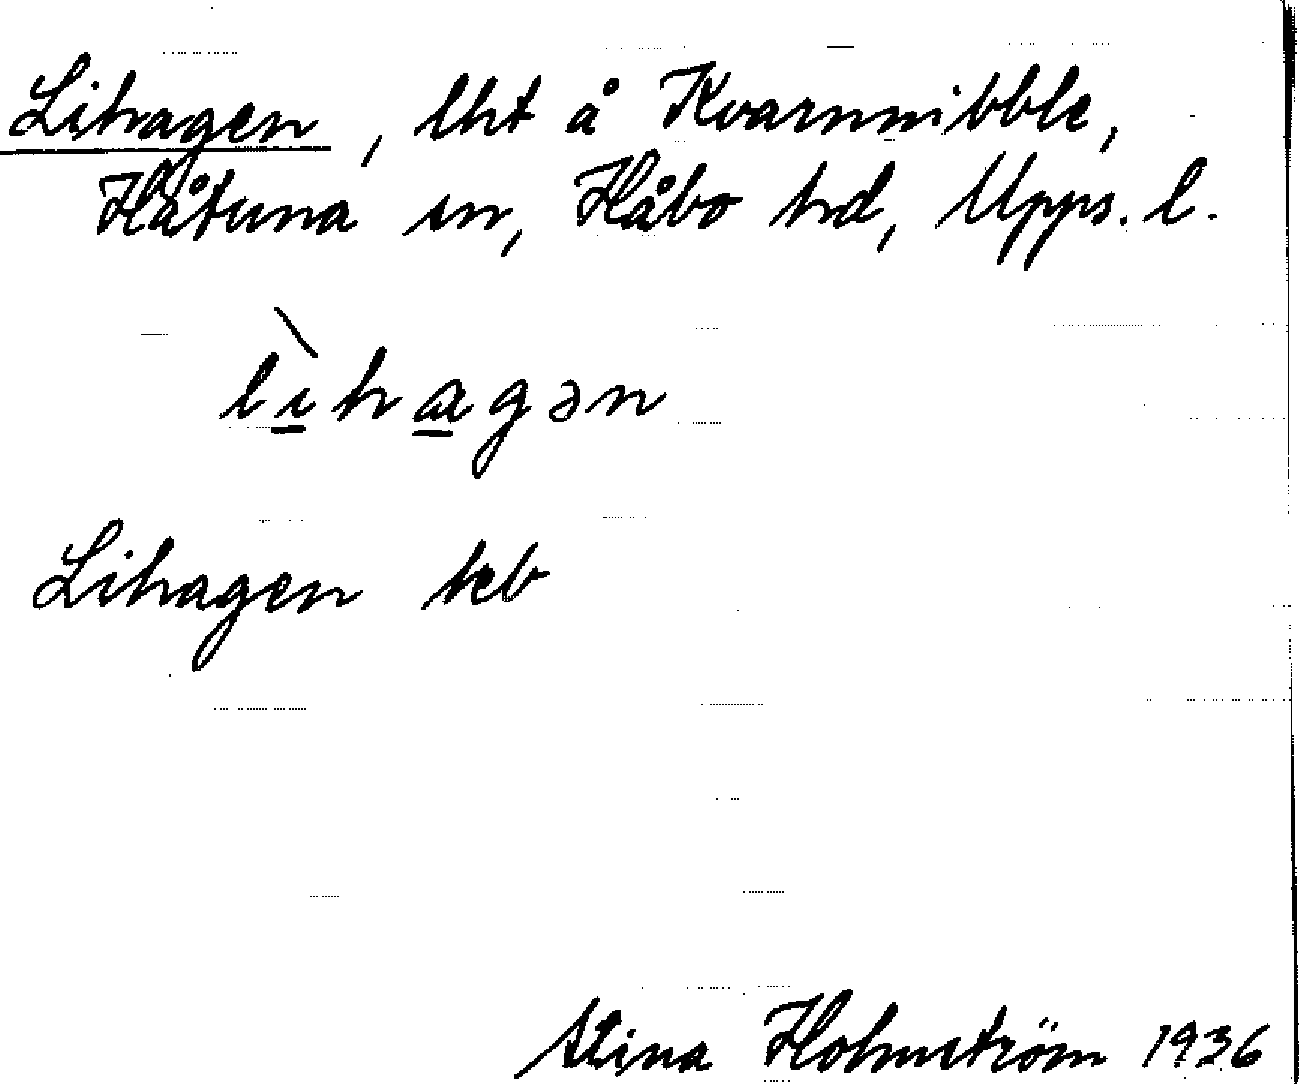 Lihagen, lht å Kvarnnibble,
Håtuna sn, Håbo hd, Upps. l.
lìhagən
Lihagen keb
Stina Holmström 1936